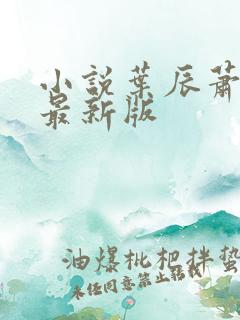 小說葉辰蕭
最新版
油爆枇杷拌蟄
未经同意禁止転載